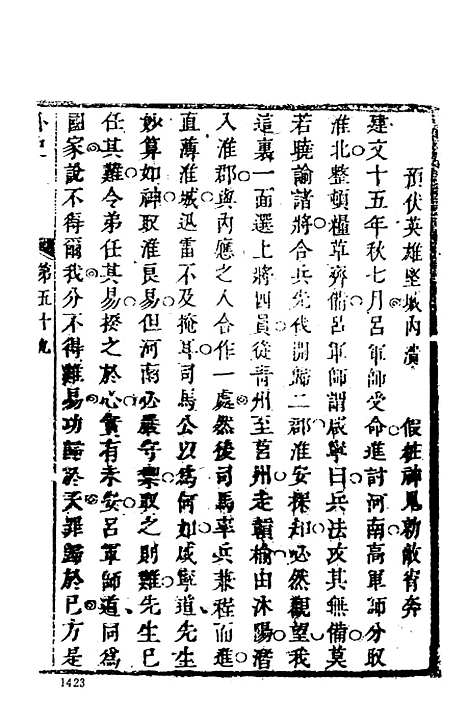 預伏英雄堅城內潰　假裝神鬼勍敵宵奔
建文十五年秋七月呂軍師受命進討河南高軍師分取
淮北整頓糧草齊備呂軍師謂咸寧曰兵法攻其無備莫
若曉諭諸將合兵先伐開歸二郡淮安探知必然觀望我
這裏一面選上將四員從青州至莒州走贛榆由沐陽潛
入淮郡與內應之人合作一處然後司馬率兵兼程而進
直薄淮城迅雷不及掩耳司馬公以爲何如咸寧道先生
妙算如神取淮良易但河南必嚴守禦取之則難先生已
任其難令弟任其易揆之於心實有未安呂軍師道同爲
國家說不得爾我分不得難易功歸於天罪歸於已方是
第五十九
1423